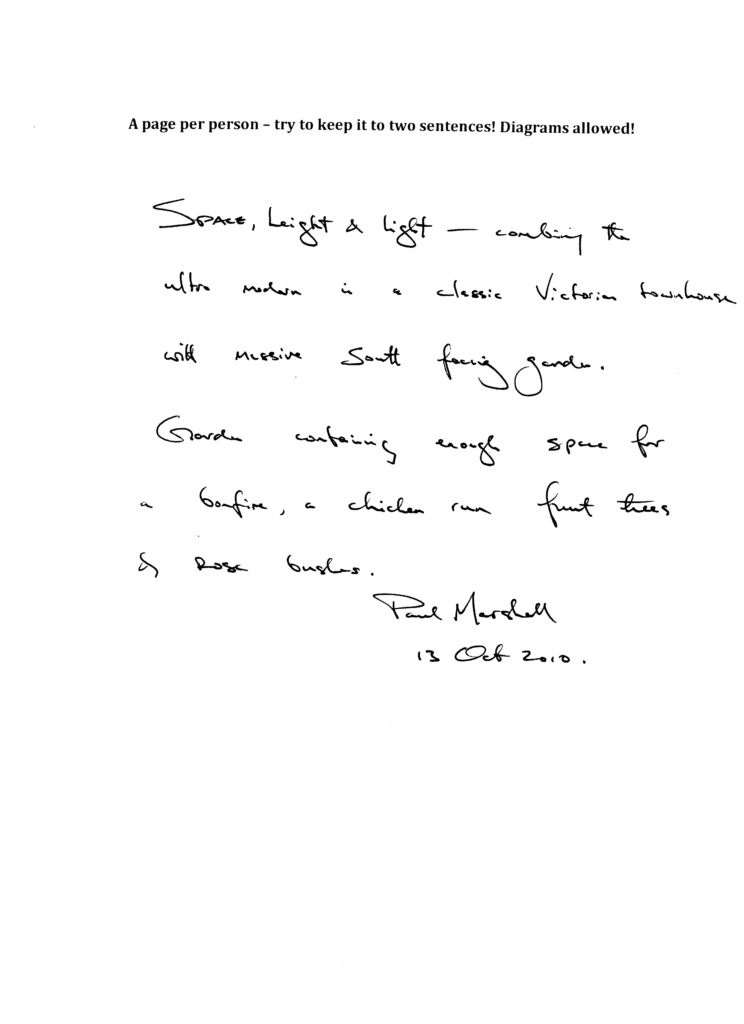 A page per person – try to keep it to two sentences! Diagrams allowed!
SPACE, height & light — combining the
ultra modern in a classic Victorian townhouse
with massive South facing garden.
Garden containing enough space for
a bonfire, a chicken run fruit trees
& Rose bushes.
Paul Marshall
13 Oct 2010.